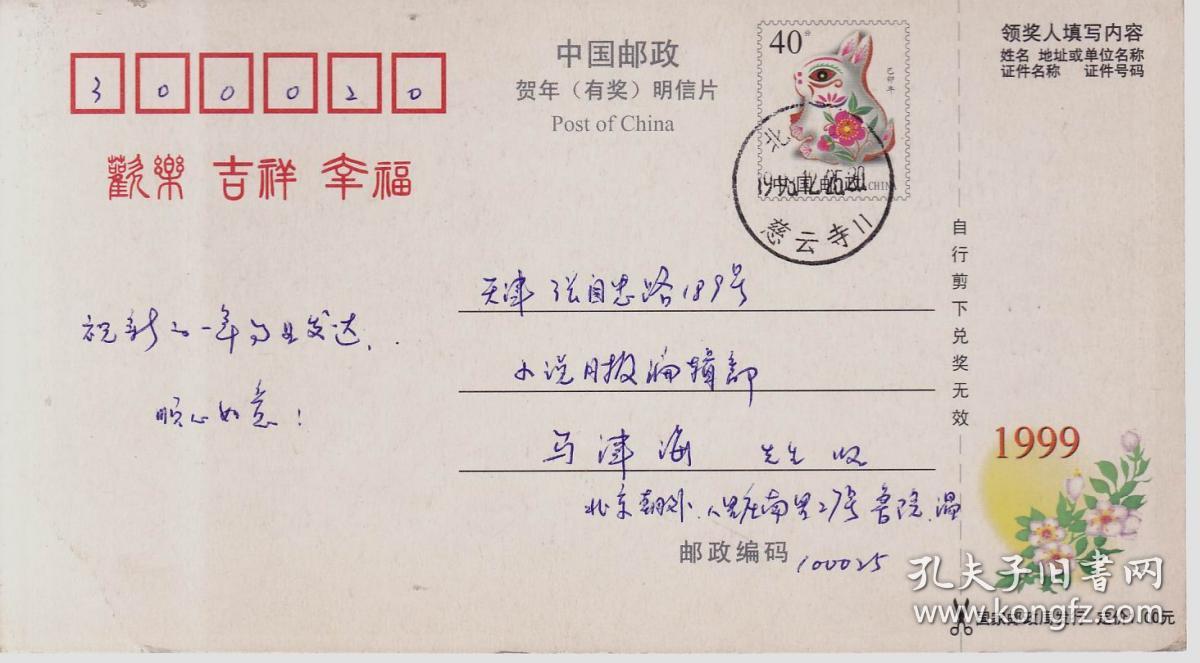 3 0 0 0 2 0
歡樂 吉祥 幸福
祝新的一年马业发达,
顺心如意!
中国邮政
贺年（有奖）明信片
Post of China
40分
己卯年
中国邮政 CHINA
北
慈云寺11
天津 张自忠路189号
小说月报编辑部
马津海 先生 收
北京朝外八里庄南里27号鲁院 温
邮政编码 100025
自行剪下兑奖无效
领奖人填写内容
姓名 地址或单位名称
证件名称 证件号码
1999
国家邮政局发行 定价 1.00元
孔夫子旧书网
www.kongfz.com